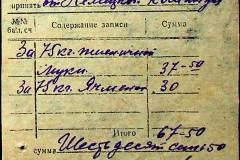 принять от Немецкой
№№ бал. сч Содержание записи Сумма
За 75 кг. пшеничной
муки 37-50
За 75 кг. Ячменя 30
Итого 67-50
сумма Шестьдесят семь 50